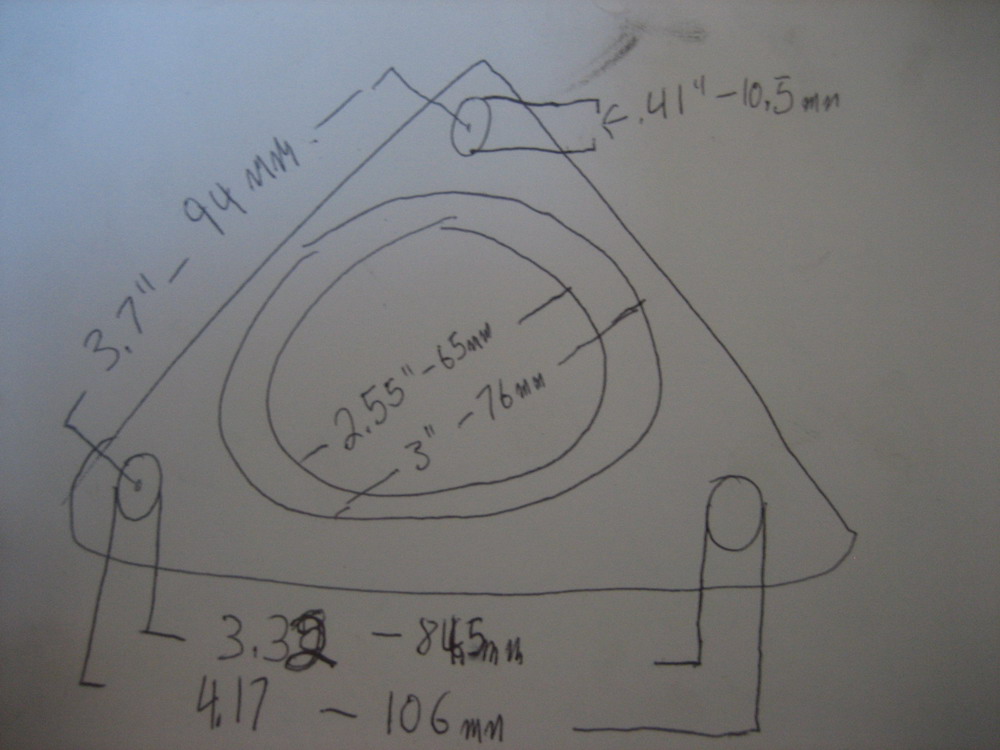 .41" - 10.5 mm
3.7" - 94 MM
2.55" - 65mm
3" - 76mm
3.32 - 84.5mm
4.17 - 106 mm